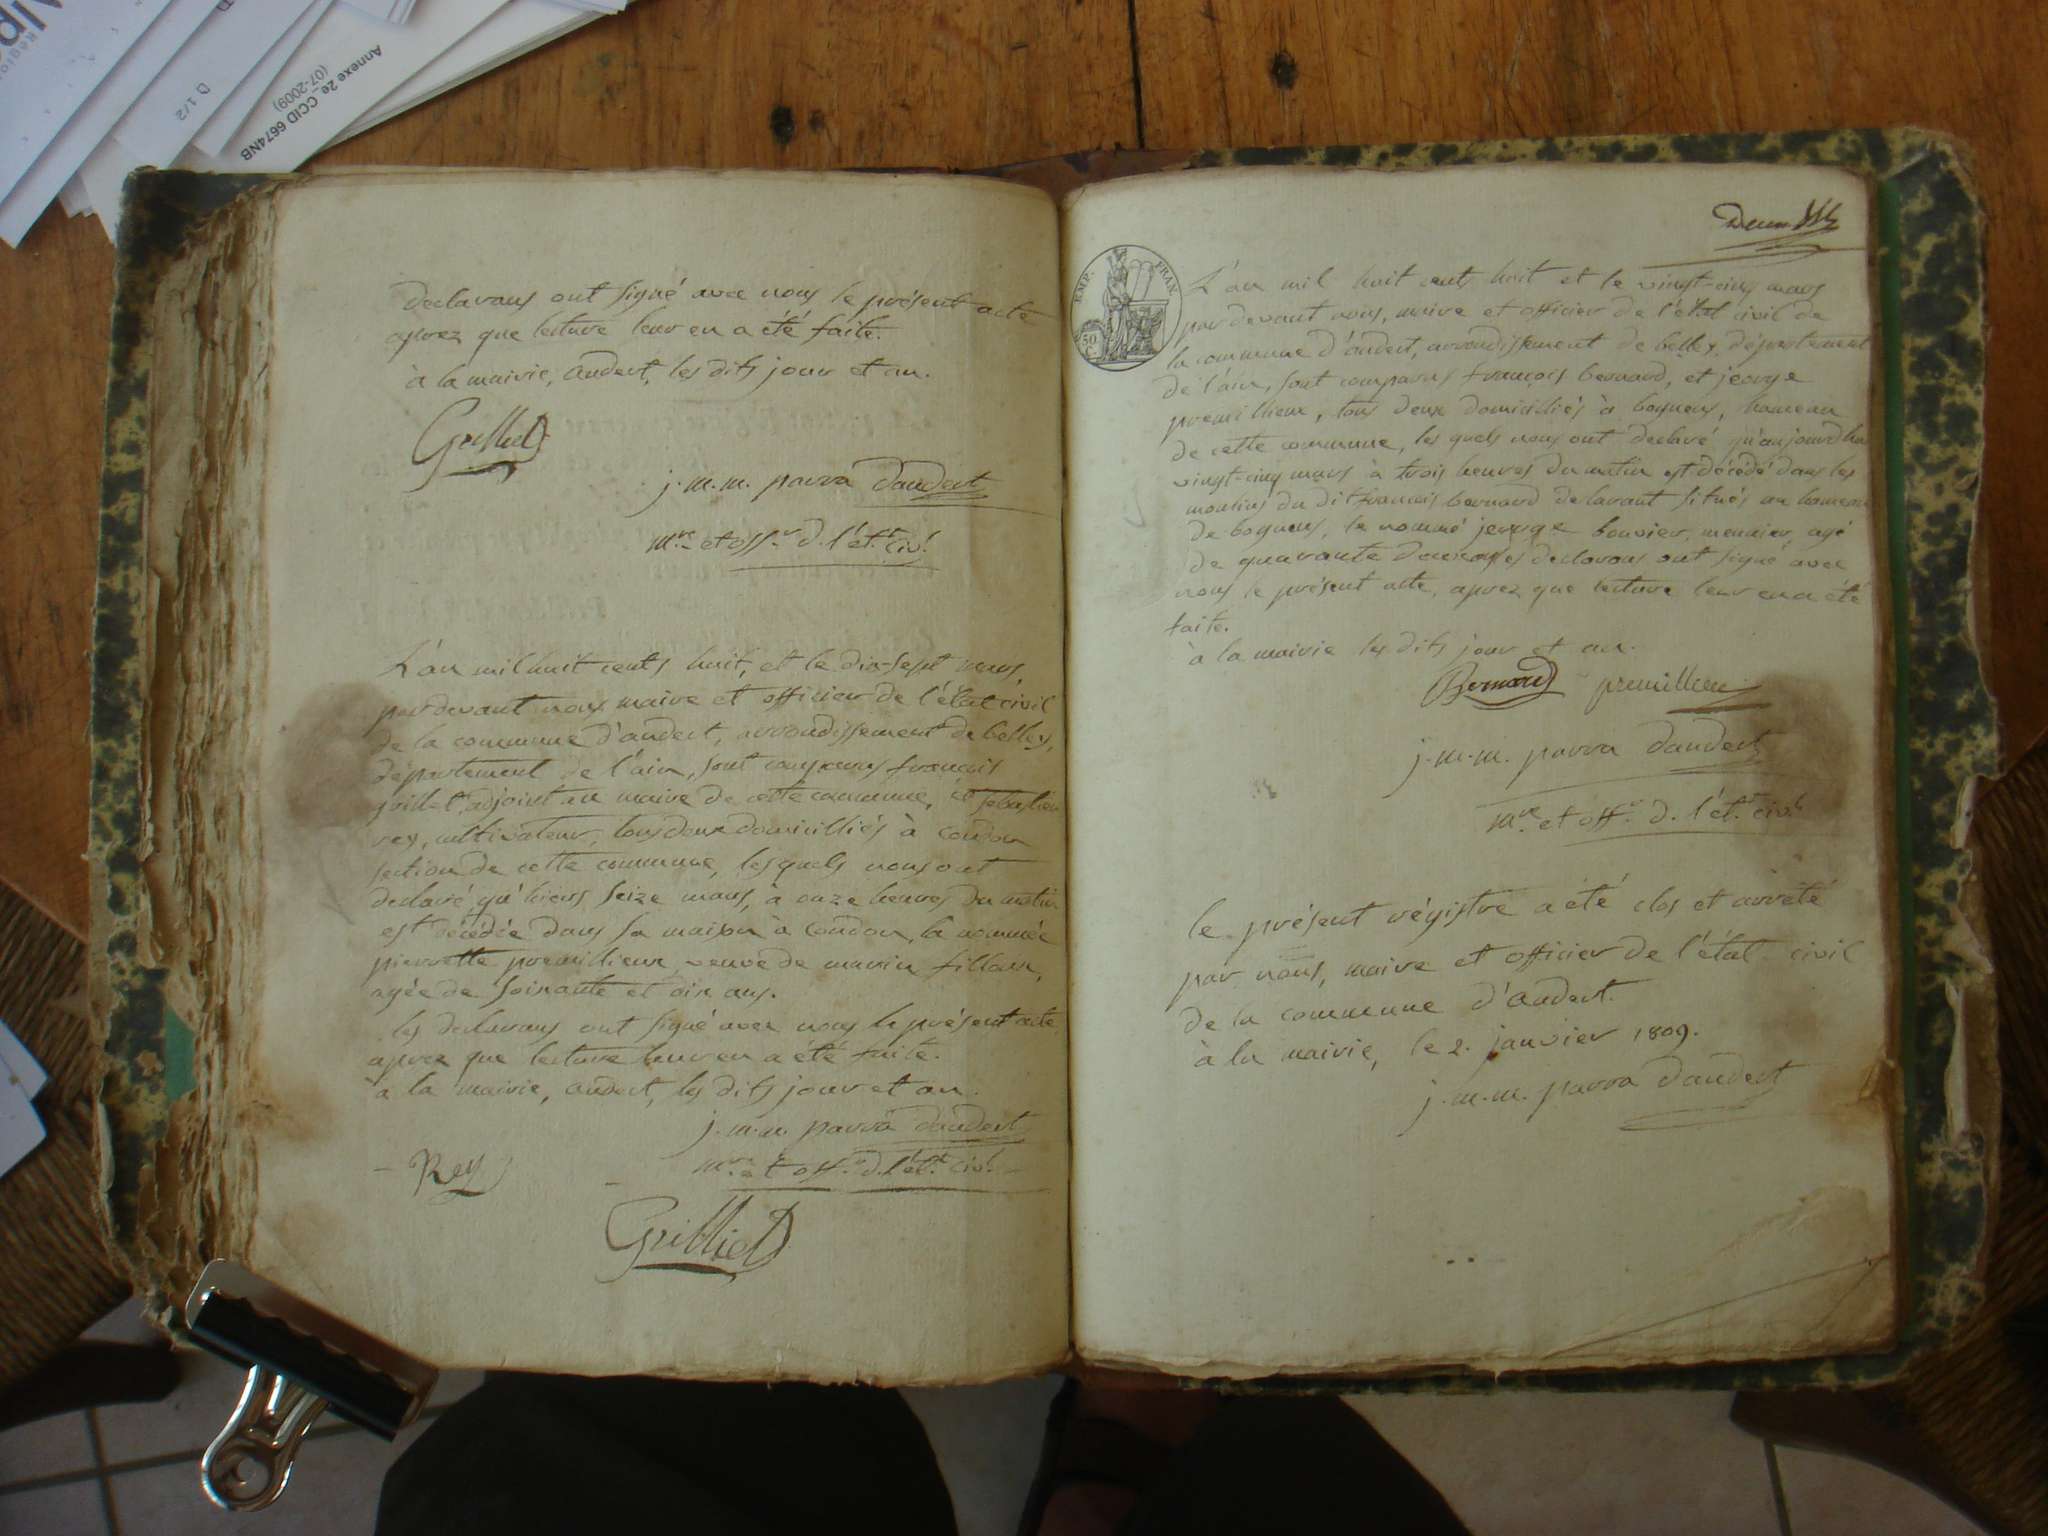 Annexe 2e_CCID 6674NB
(07-2009)
D 1/2
declarans ont signé avec nous le présent acte
aprez que lecture leur en a été faite.
à la mairie, andert, les dits jour et an.
Grilliet
j. m. m. parra dandert
m.re et off.r d. l'ét.t civ.l
L'an mil huit cents huit, et le dix-sept mars,
pardevant nous maire et officier de l'état civil
de la commune d'andert, arrondissement de belley,
département de l'ain, sont comparus françois
grilliet, adjoint au maire de cette commune, et sebastien
rey, cultivateur, tous deux domicilliés à Condon
section de cette commune, lesquels nous ont
declaré qu'hiers seize mars, à onze heures du matin
est décédée dans sa maison à Condon, la nommée
pierrette premillieux, veuve de marin
agée de soixante et dix ans.
les declarans ont signé avec nous le présent acte
aprez que lecture leur en a été faite.
à la mairie, andert, les dits jour et an.
j. m. m. parra dandert
m.re et off.r d. l'ét.t civ.l
Rey
Grilliet
EMP. FRAN.
50
L'an mil huit cents huit et le vingt-cinq mars
par devant nous, maire et officier de l'état civil de
la commune d'andert, arrondissement de belley, département
de l'ain, sont comparus françois bernard, et jeorge
premillieux, tous deux domicilliés à bognens, hameau
de cette commune, les quels nous ont declaré qu'aujourdhui
vingt-cinq mars à trois heures du matin est décédé dans les
moulins du dit françois bernard declarant situés au hameau
de bognens, le nommé jeorge bouvier, meunier, agé
de quarante deux declarans ont signé avec
nous le présent acte, aprez que lecture leur en a été
faite.
à la mairie les dits jour et an.
Bernard premillieu
j. m. m. parra dandert
m.re et off.r d. l'ét.t civ.l
le présent régistre a été clos et arrêté
par nous, maire et officier de l'état civil
de la commune d'andert.
à la mairie, le 2. janvier 1809.
j. m. m. parra dandert